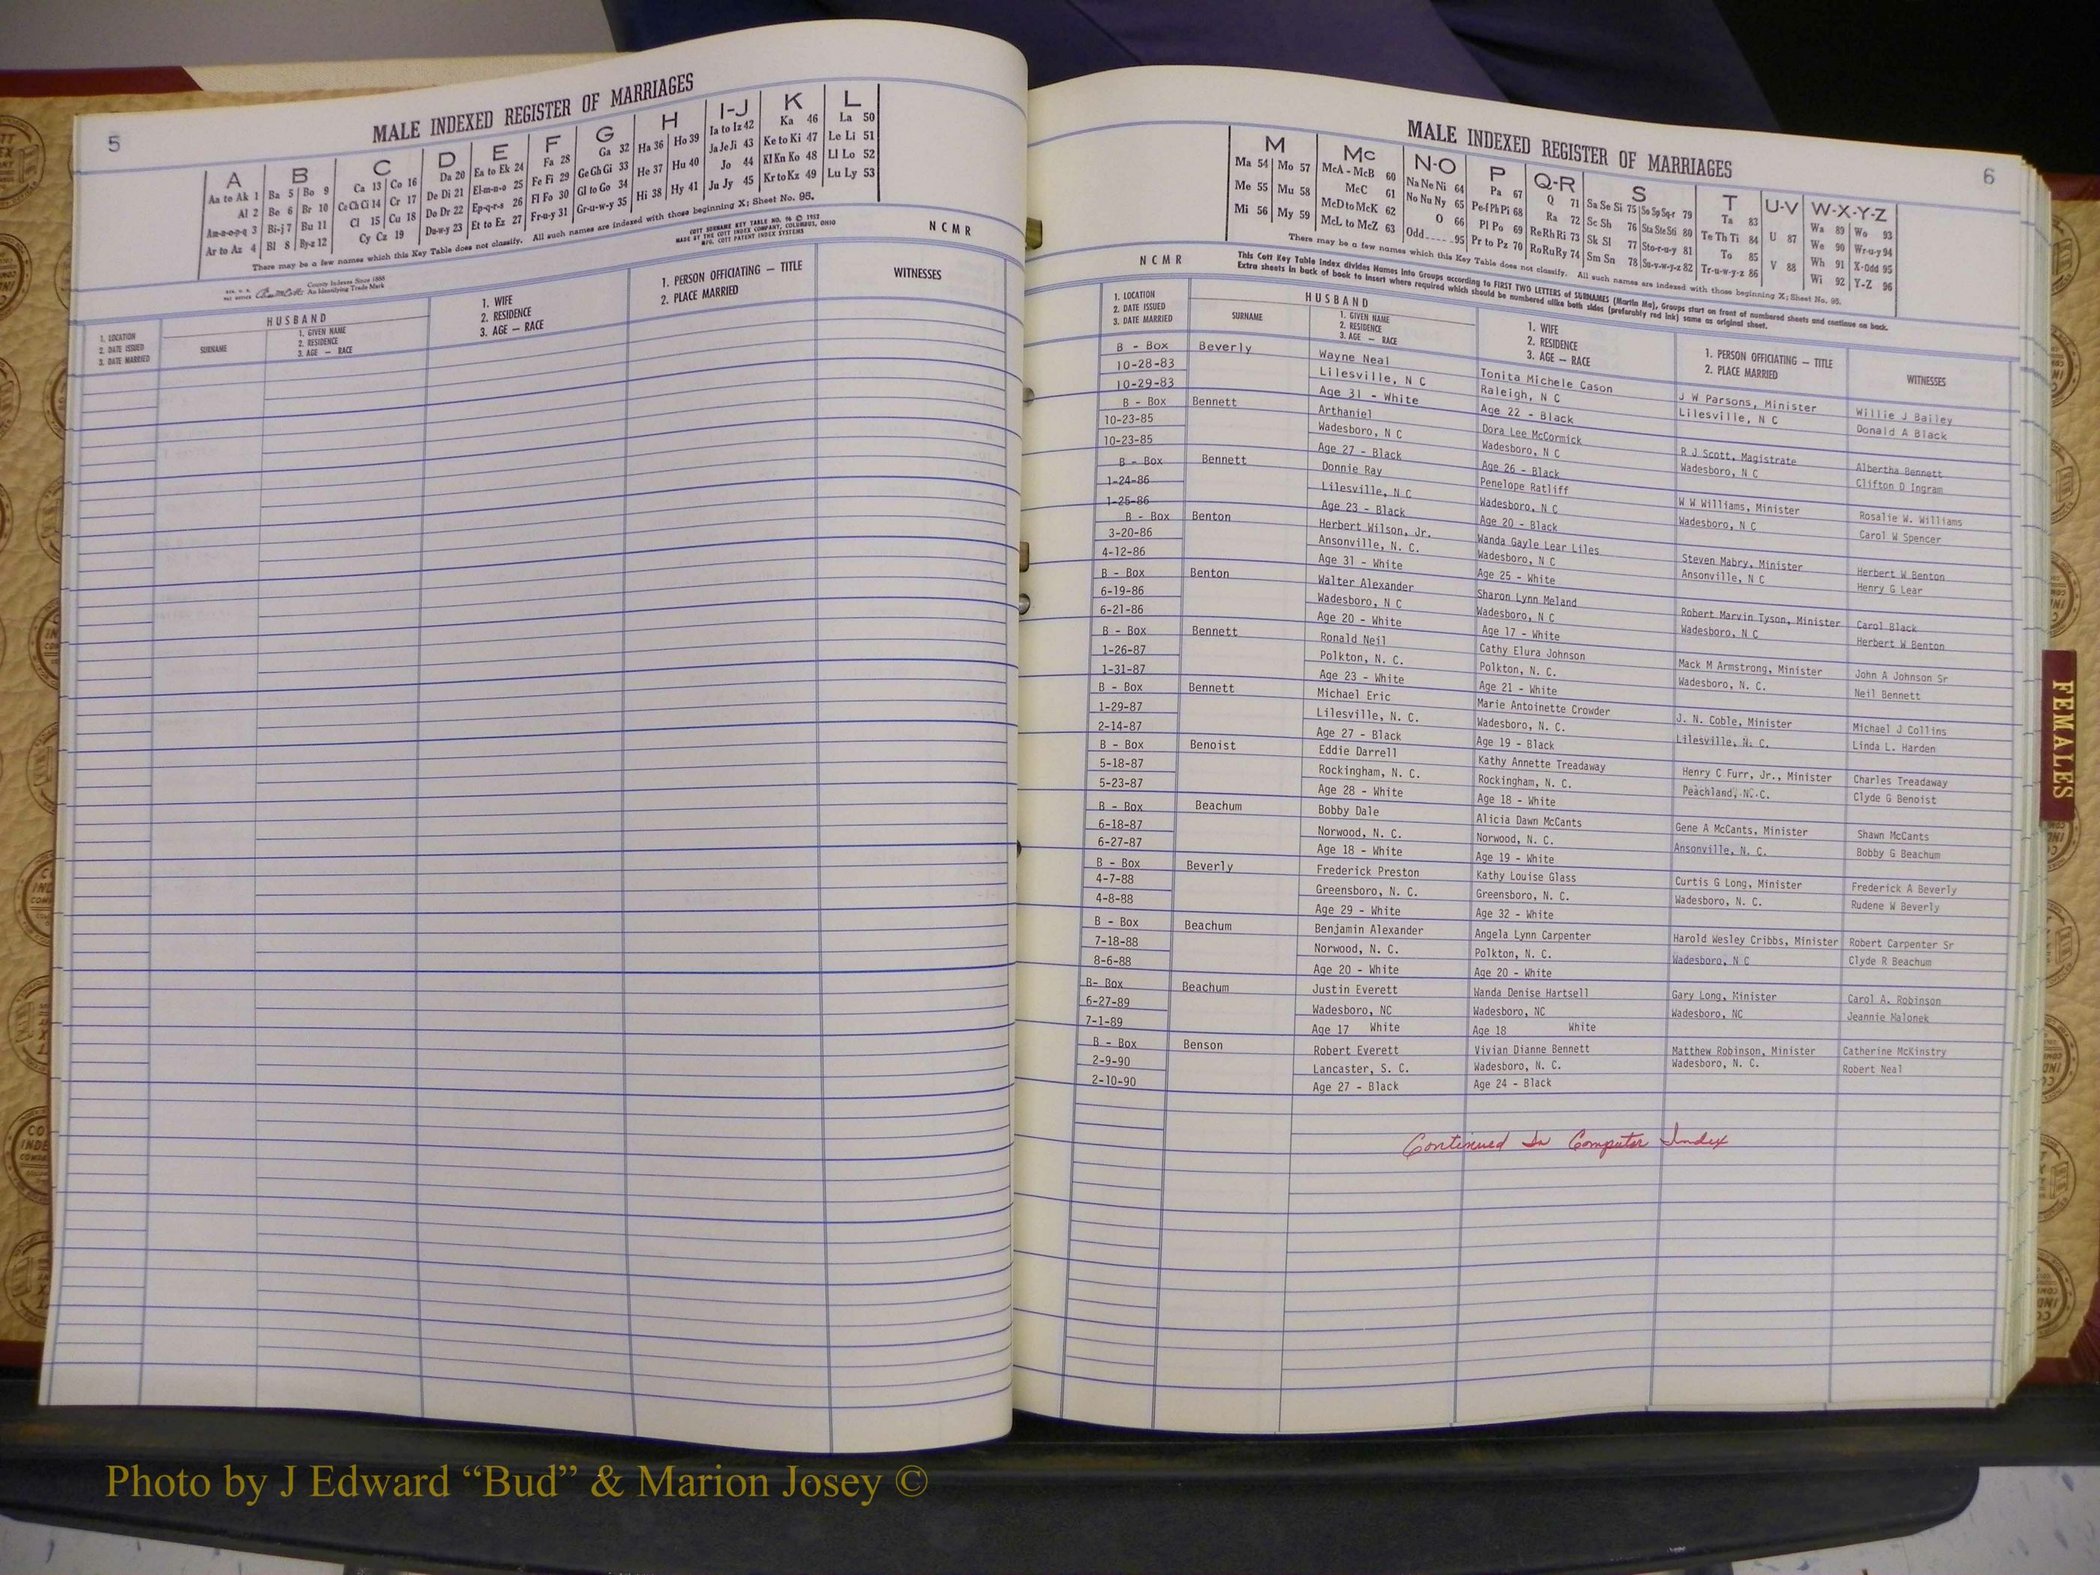 5
MALE INDEXED REGISTER OF MARRIAGES
A B C D E F G H I-J K L
Aa to Ak 1 Ba 5 Bo 9 Ca 13 Co 16 Da 20 Ea to Ek 24 Fa 28 Ga 32 Ha 36 Ho 39 Ia to Iz 42 Ka 46 La 50
Al 2 Be 6 Br 10 Ce Ch Ci 14 Cr 17 De Di 21 El-m-n-o 25 Fe Fi 29 Ge Gh Gi 33 He 37 Hu 40 Ja Je Ji 43 Ke to Ki 47 Le Li 51
Am-n-o-p-q 3 Bi-j 7 Bu 11 Cl 15 Cu 18 Do Dr 22 Ep-q-r-s 26 Fl Fo 30 Gl to Go 34 Hi 38 Hy 41 Jo 44 Kl Kn Ko 48 Ll Lo 52
Ar to Az 4 Bl 8 By-z 12 Cy Cz 19 Du-w-y 23 Et to Ez 27 Fr-u-y 31 Gr-u-w-y 35 Ju Jy 45 Kr to Kz 49 Lu Ly 53
There may be a few names which this Key Table does not classify. All such names are indexed with those beginning X; Sheet No. 95.
County Indexes Since 1888
An Identifying Trade Mark
COTT SURNAME KEY TABLE NO. 96 © 1952
MADE BY THE COTT INDEX COMPANY, COLUMBUS, OHIO
MFG. COTT PATENT INDEX SYSTEMS
NCMR
1. LOCATION
2. DATE ISSUED
3. DATE MARRIED
HUSBAND
SURNAME
1. GIVEN NAME
2. RESIDENCE
3. AGE — RACE
1. WIFE
2. RESIDENCE
3. AGE — RACE
1. PERSON OFFICIATING — TITLE
2. PLACE MARRIED
WITNESSES
MALE INDEXED REGISTER OF MARRIAGES
6
M Mc N-O P Q-R S T U-V W-X-Y-Z
Ma 54 Mo 57 McA - McB 60 Na Ne Ni 64 Pa 67 Q 71 Sa Se Si 75 So Sp Sq-r 79 Ta 83 U 87 Wa 89 Wo 93
Me 55 Mu 58 McC 61 No Nu Ny 65 Pe-f Ph Pi 68 Ra 72 Sc Sh 76 Sta Ste Sti 80 Te Th Ti 84 We 90 Wr-u-y 94
Mi 56 My 59 McD to McK 62 O 66 Pl Po 69 Re Rh Ri 73 Sk Sl 77 Sto-r-u-y 81 To 85 V 88 Wh 91 X-Odd 95
McL to McZ 63 Odd 95 Pr to Pz 70 Ro Ru Ry 74 Sm Sn 78 Su-v-w-y-z 82 Tr-u-w-y-z 86 Wi 92 Y-Z 96
There may be a few names which this Key Table does not classify. All such names are indexed with those beginning X; Sheet No. 95.
NCMR
This Cott Key Table Index divides Names into Groups according to FIRST TWO LETTERS of SURNAMES (Martin Ma), Groups start on front of numbered sheets and continue on back.
Extra sheets in back of book to insert where required which should be numbered alike both sides (preferably red ink) same as original sheet.
1. LOCATION
2. DATE ISSUED
3. DATE MARRIED
HUSBAND
SURNAME
1. GIVEN NAME
2. RESIDENCE
3. AGE — RACE
1. WIFE
2. RESIDENCE
3. AGE — RACE
1. PERSON OFFICIATING — TITLE
2. PLACE MARRIED
WITNESSES
B - Box Beverly Wayne Neal Tonita Michele Cason J W Parsons, Minister Willie J Bailey
10-28-83 Lilesville, N C Raleigh, N C Lilesville, N C Donald A Black
10-29-83 Age 31 - White Age 22 - Black
B - Box Bennett Arthaniel Dora Lee McCormick R J Scott, Magistrate Albertha Bennett
10-23-85 Wadesboro, N C Wadesboro, N C Wadesboro, N C Clifton D Ingram
10-23-85 Age 27 - Black Age 26 - Black
B - Box Bennett Donnie Ray Penelope Ratliff W W Williams, Minister Rosalie W. Williams
1-24-86 Lilesville, N C Wadesboro, N C Wadesboro, N C Carol W Spencer
1-25-86 Age 23 - Black Age 20 - Black
B - Box Benton Herbert Wilson, Jr. Wanda Gayle Lear Liles Steven Mabry, Minister Herbert W Benton
3-20-86 Ansonville, N. C. Wadesboro, N C Ansonville, N C Henry G Lear
4-12-86 Age 31 - White Age 25 - White
B - Box Benton Walter Alexander Sharon Lynn Meland Robert Marvin Tyson, Minister Carol Black
6-19-86 Wadesboro, N C Wadesboro, N C Wadesboro, N C Herbert W Benton
6-21-86 Age 20 - White Age 17 - White
B - Box Bennett Ronald Neil Cathy Elura Johnson Mack M Armstrong, Minister John A Johnson Sr
1-26-87 Polkton, N. C. Polkton, N. C. Wadesboro, N. C. Neil Bennett
1-31-87 Age 23 - White Age 21 - White
B - Box Bennett Michael Eric Marie Antoinette Crowder J. N. Coble, Minister Michael J Collins
1-29-87 Lilesville, N. C. Wadesboro, N. C. Lilesville, N. C. Linda L. Harden
2-14-87 Age 27 - Black Age 19 - Black
B - Box Benoist Eddie Darrell Kathy Annette Treadaway Henry C Furr, Jr., Minister Charles Treadaway
5-18-87 Rockingham, N. C. Rockingham, N. C. Peachland, N. C. Clyde G Benoist
5-23-87 Age 28 - White Age 18 - White
B - Box Beachum Bobby Dale Alicia Dawn McCants Gene A McCants, Minister Shawn McCants
6-18-87 Norwood, N. C. Norwood, N. C. Ansonville, N. C. Bobby G Beachum
6-27-87 Age 18 - White Age 19 - White
B - Box Beverly Frederick Preston Kathy Louise Glass Curtis G Long, Minister Frederick A Beverly
4-7-88 Greensboro, N. C. Greensboro, N. C. Wadesboro, N. C. Rudene W Beverly
4-8-88 Age 29 - White Age 32 - White
B - Box Beachum Benjamin Alexander Angela Lynn Carpenter Harold Wesley Cribbs, Minister Robert Carpenter Sr
7-18-88 Norwood, N. C. Polkton, N. C. Wadesboro, N C Clyde R Beachum
8-6-88 Age 20 - White Age 20 - White
B- Box Beachum Justin Everett Wanda Denise Hartsell Gary Long, Minister Carol A. Robinson
6-27-89 Wadesboro, NC Wadesboro, NC Wadesboro, NC Jeannie Malonek
7-1-89 Age 17 White Age 18 White
B - Box Benson Robert Everett Vivian Dianne Bennett Matthew Robinson, Minister Catherine McKinstry
2-9-90 Lancaster, S. C. Wadesboro, N. C. Wadesboro, N. C. Robert Neal
2-10-90 Age 27 - Black Age 24 - Black
Continued In Computer Index
FEMALES
Photo by J Edward “Bud” & Marion Josey ©